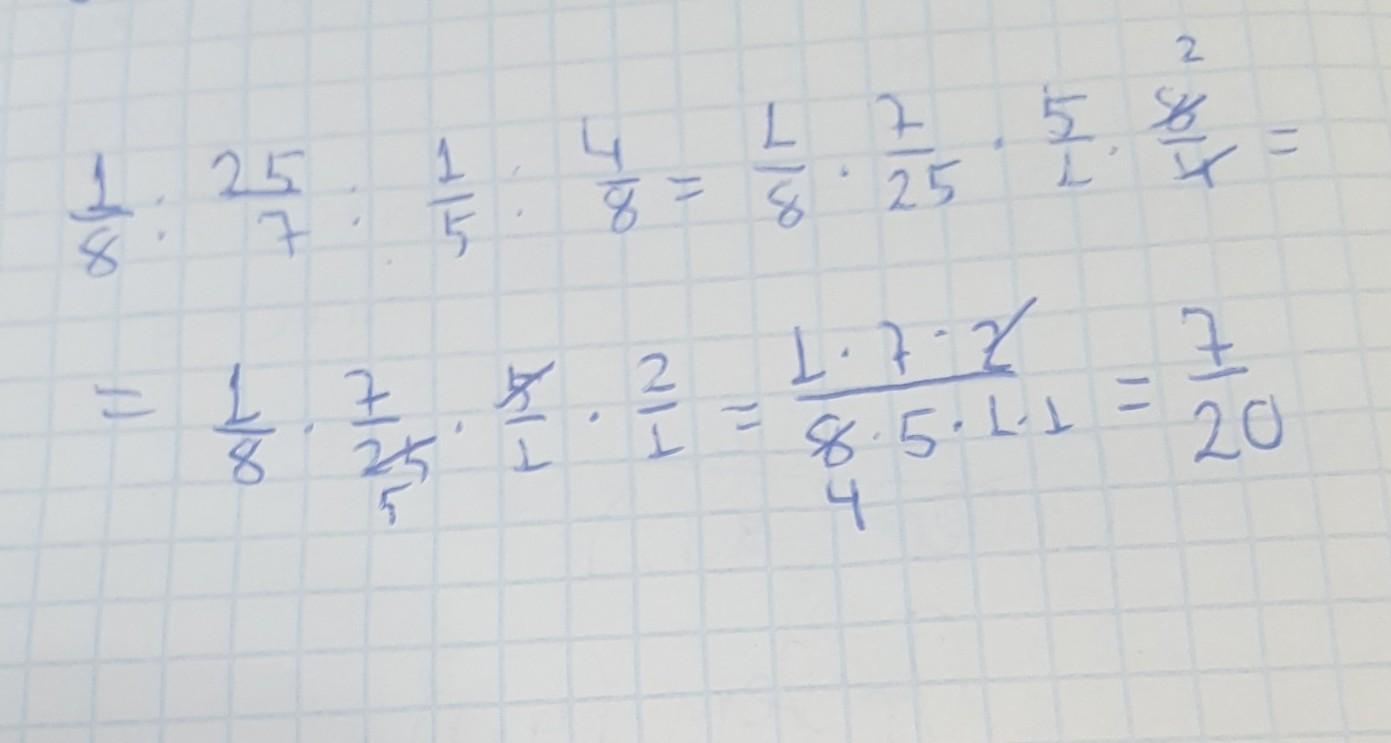 1/8 : 25/7 : 1/5 : 4/8 = 1/8 · 7/25 · 5/1 · 8/4 2 =
= 1/8 · 7/25 5 · 5/1 · 2/1 = 1·7·2/8·5·1·1 4 = 7/20